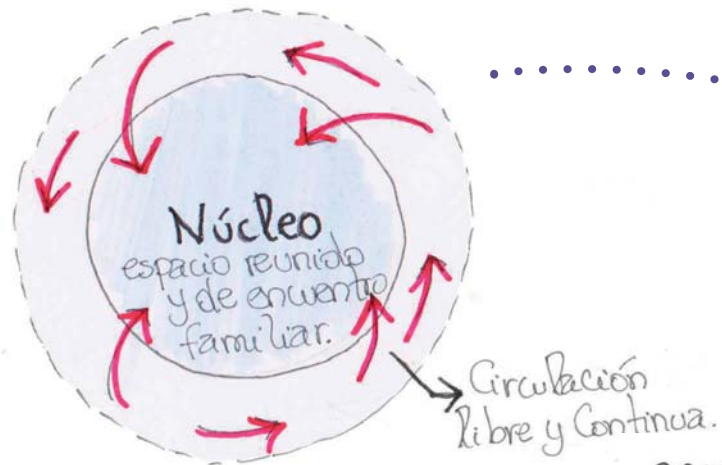 Núcleo
espacio reunido
y de encuentro
familiar.
Circulación
libre y Continua.